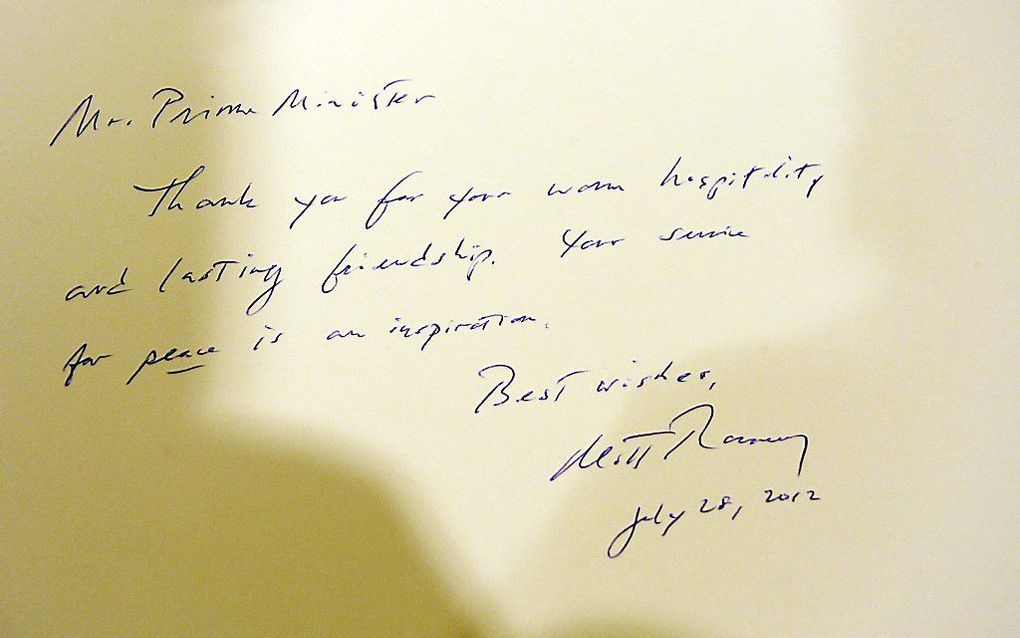 Mr. Prime Minister
Thank you for your warm hospitality
and lasting friendship. Your service
for peace is an inspiration.
Best wishes,
Mitt Romney
July 28, 2012